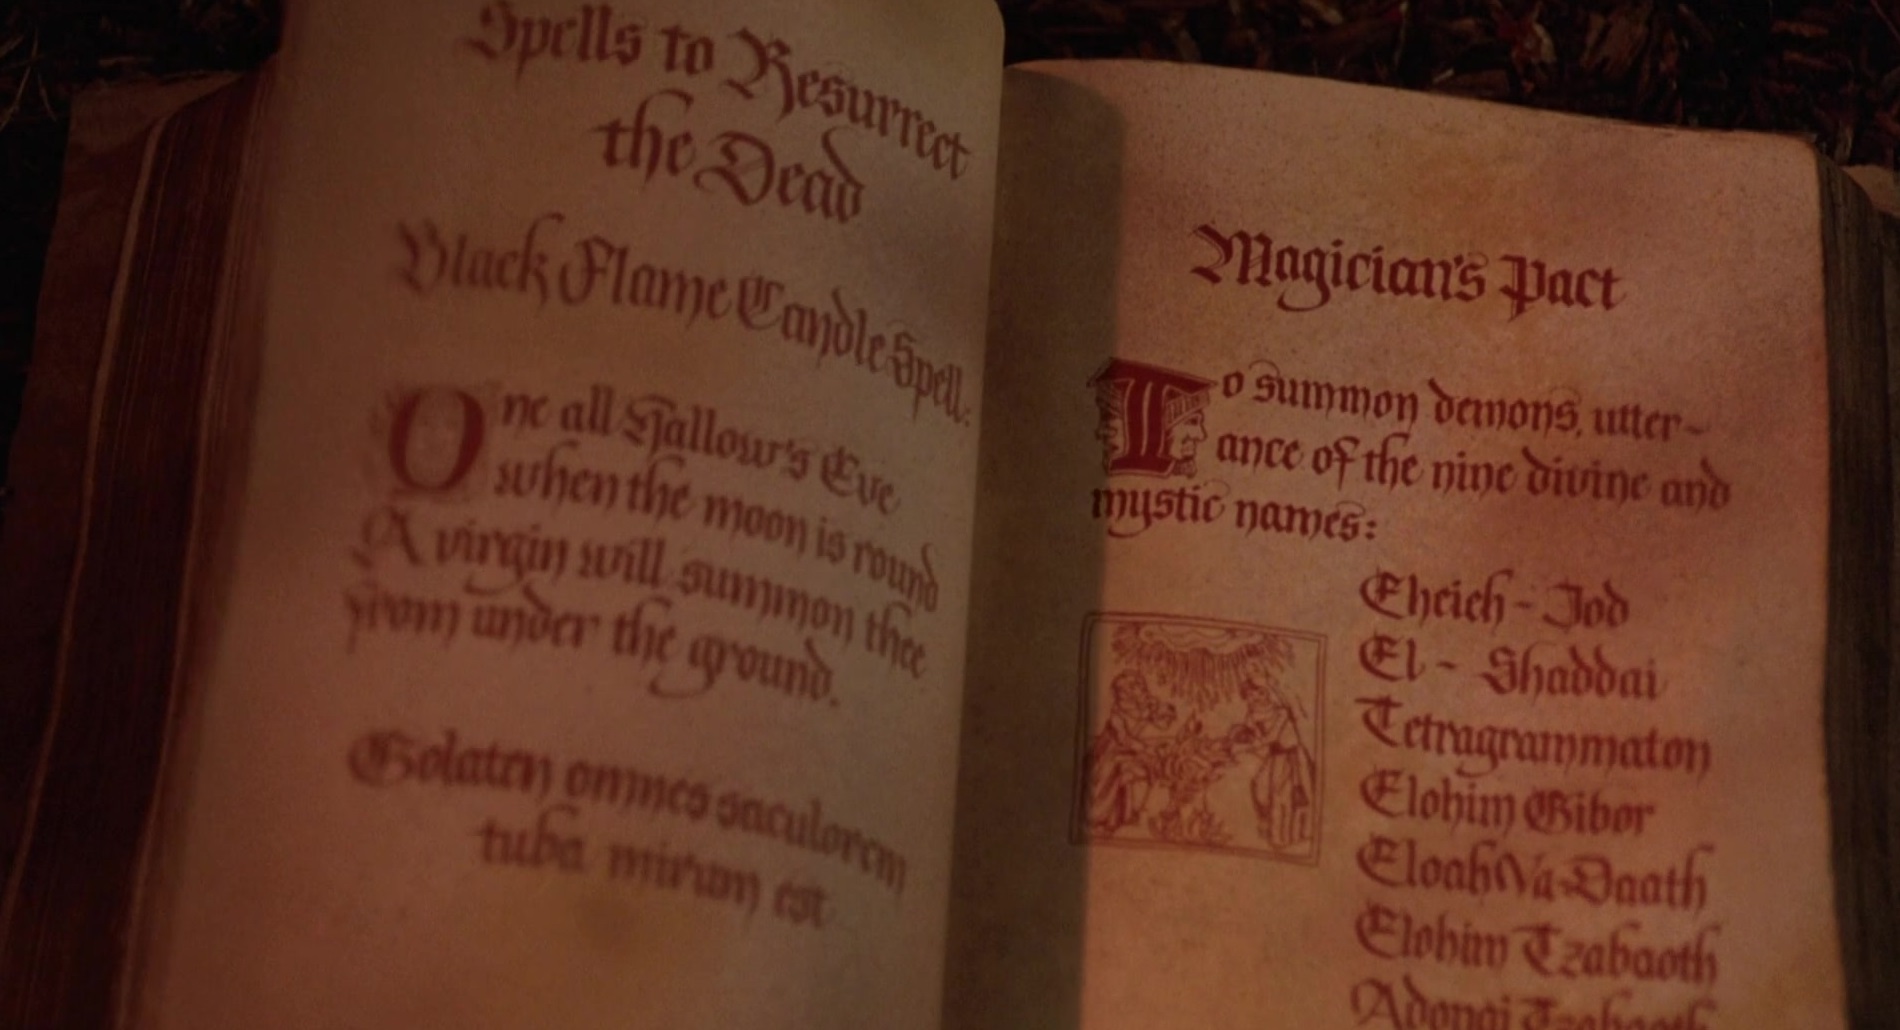 Spells to Resurrect
the Dead
Black Flame Candle Spell:
One all Hallow's Eve
when the moon is round
A virgin will summon thee
from under the ground.
Golaten omnes saculorem
tuba mirum est
Magician's Pact
To summon demons, utter-
ance of the nine divine and
mystic names:
Eheieh - Iod
El - Shaddai
Tetragrammaton
Elohim Gibor
Eloah Va-Daath
Elohim Tzabaoth
Adonai Tzabaoth